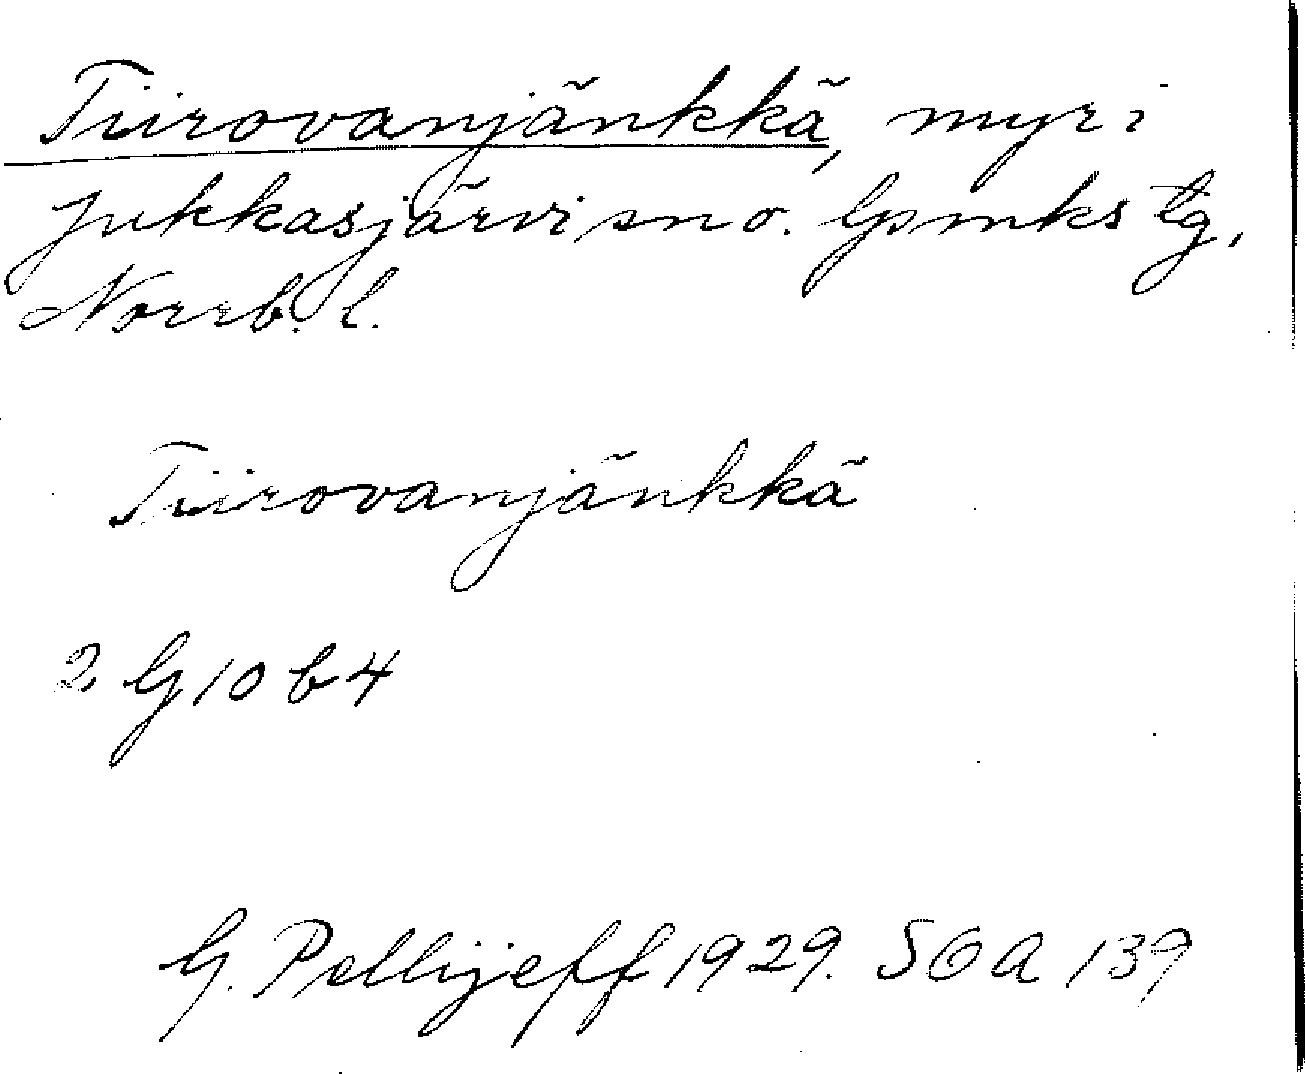 Tiirovanjänkkä, myr i
Jukkasjärvi sn o. Lpmks tg,
Norrb. l.
Tiirovanjänkkä
2 G 10 b 4
G. Pellijeff 1929. SOA 139